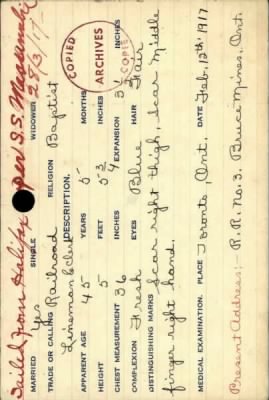 Sailed from Halifax per S.S. Missanabie
28/3/17
MARRIED Yes SINGLE WIDOWER
TRADE OR CALLING Railroad RELIGION Baptist
Lineman & Clerk
DESCRIPTION.
APPARENT AGE 45 YEARS 5 MONTHS
HEIGHT 5 FEET 5 3/4 INCHES
CHEST MEASUREMENT 36 INCHES EXPANSION
COMPLEXION Fresh EYES Blue HAIR Fair
DISTINGUISHING MARKS Scar right thigh, Scar middle
finger right hand.
MEDICAL EXAMINATION. PLACE Toronto, Ont. DATE Feb. 12th 1917
Present Address:- R.R. No. 3. Bruce Mines, Ont.
COPIED
ARCHIVES
COPIÉ